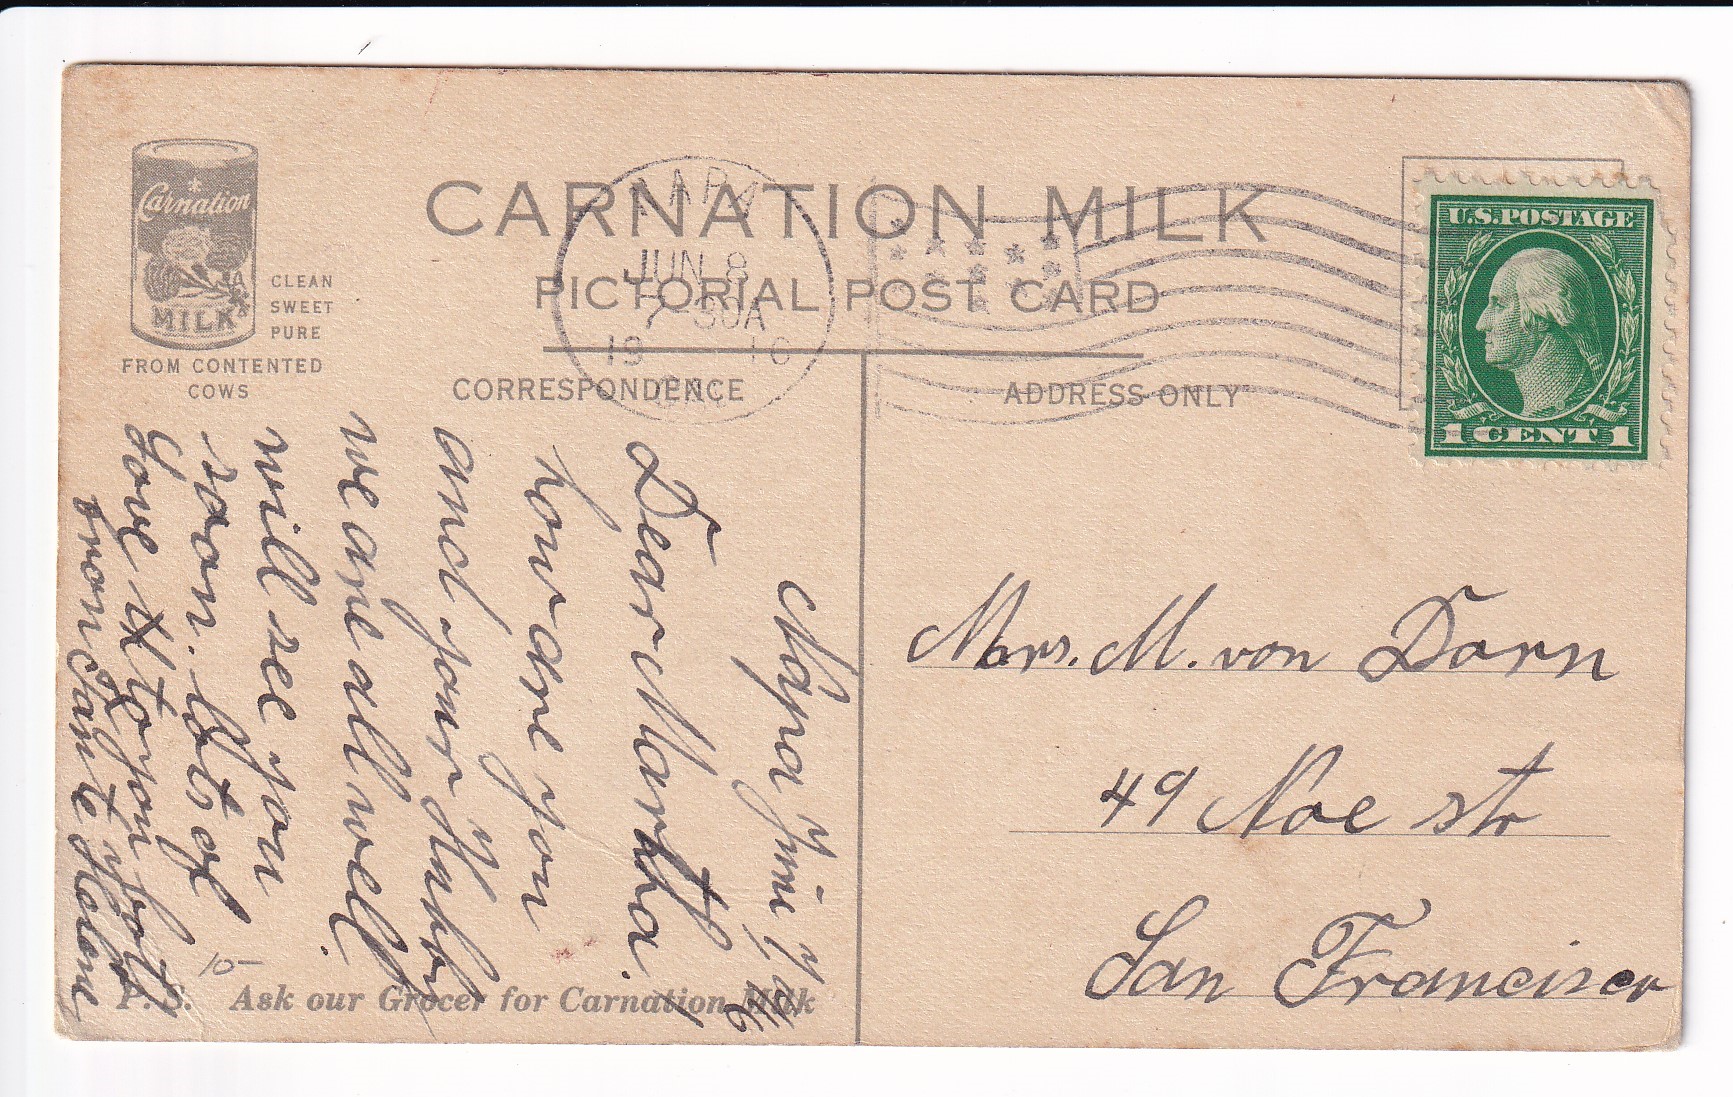 Carnation
MILK
CLEAN
SWEET
PURE
FROM CONTENTED
COWS
CARNATION MILK
PICTORIAL POST CARD
CORRESPONDENCE
ADDRESS ONLY
NAPA
JUN 8
7 30A
19 16
CAL
U.S. POSTAGE
1 CENT 1
Napa June 7/16
Dear Martha.
how are you
and your Hubby
we are all well
will see you
soon. lots of
Love to you both
from
Mrs. M. von Dorn
49 Noe str
San Francisco
10-
P. S. Ask our Grocer for Carnation Milk